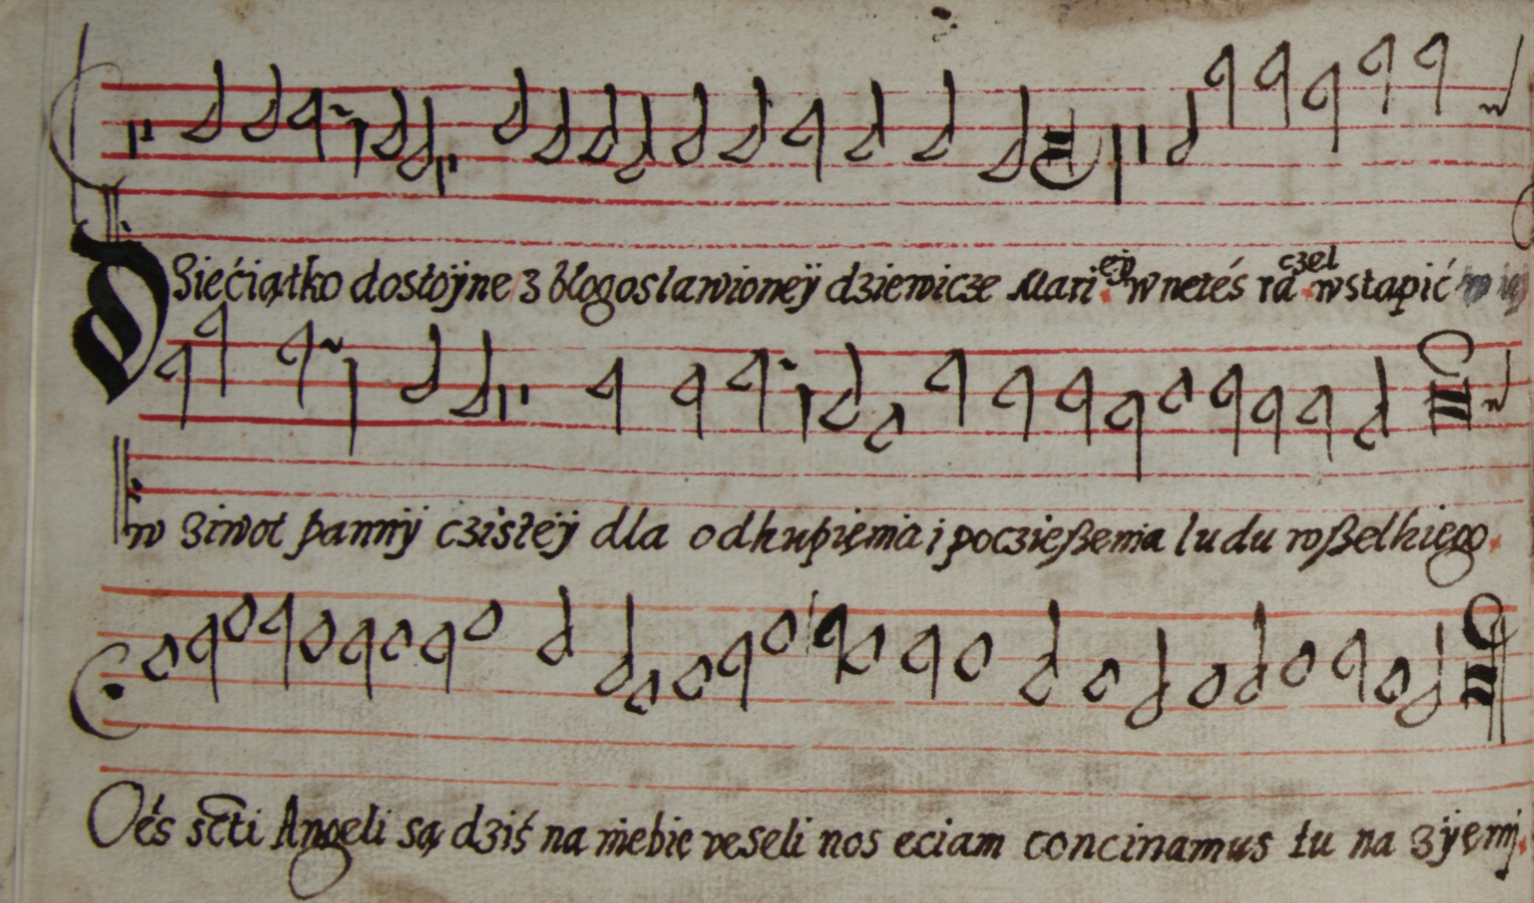 Dziećiątko dostoÿne z blogoslawioneÿ dziewicze Mariëÿ wnetéś raczel wstapić
w ziwot pannÿ czisteÿ dla odkupięnia i poczießenia ludu wßelkiego.
Oés scti Angeli są dziś na niebie veseli nos eciam concinamus tu na zÿemj.